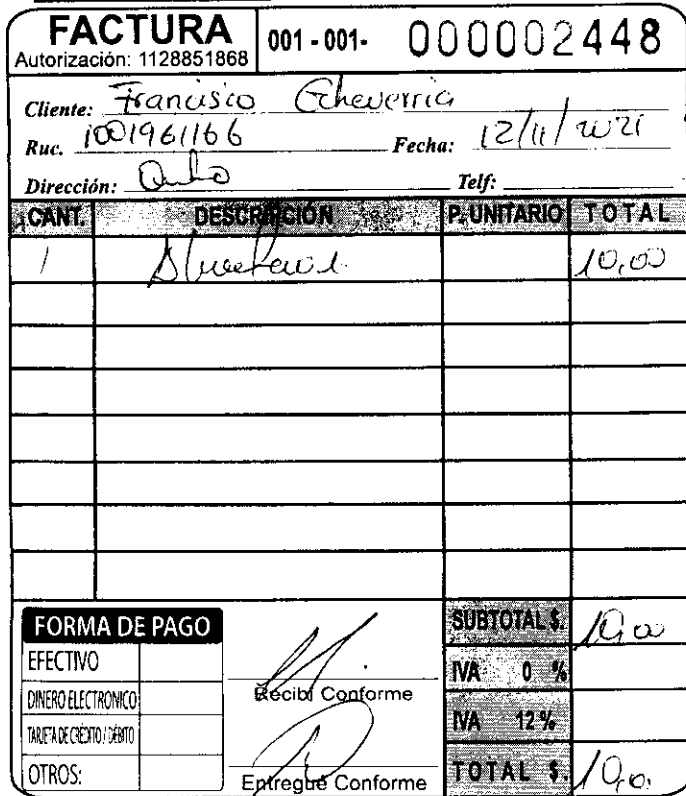 FACTURA 001 - 001- 000002448
Autorización: 1128851868
Cliente: Francisco Echeverria
Ruc. 1001961166 Fecha: 12/11/2021
Dirección: Telf:
CANT. DESCRIPCIÓN P. UNITARIO TOTAL
1 10,00
FORMA DE PAGO
EFECTIVO
DINERO ELECTRONICO
TARJETA DE CRÉDITO / DÉBITO
OTROS:
Recibí Conforme
Entregué Conforme
SUBTOTAL $. 10,00
IVA 0 %
IVA 12%
TOTAL $. 10,0